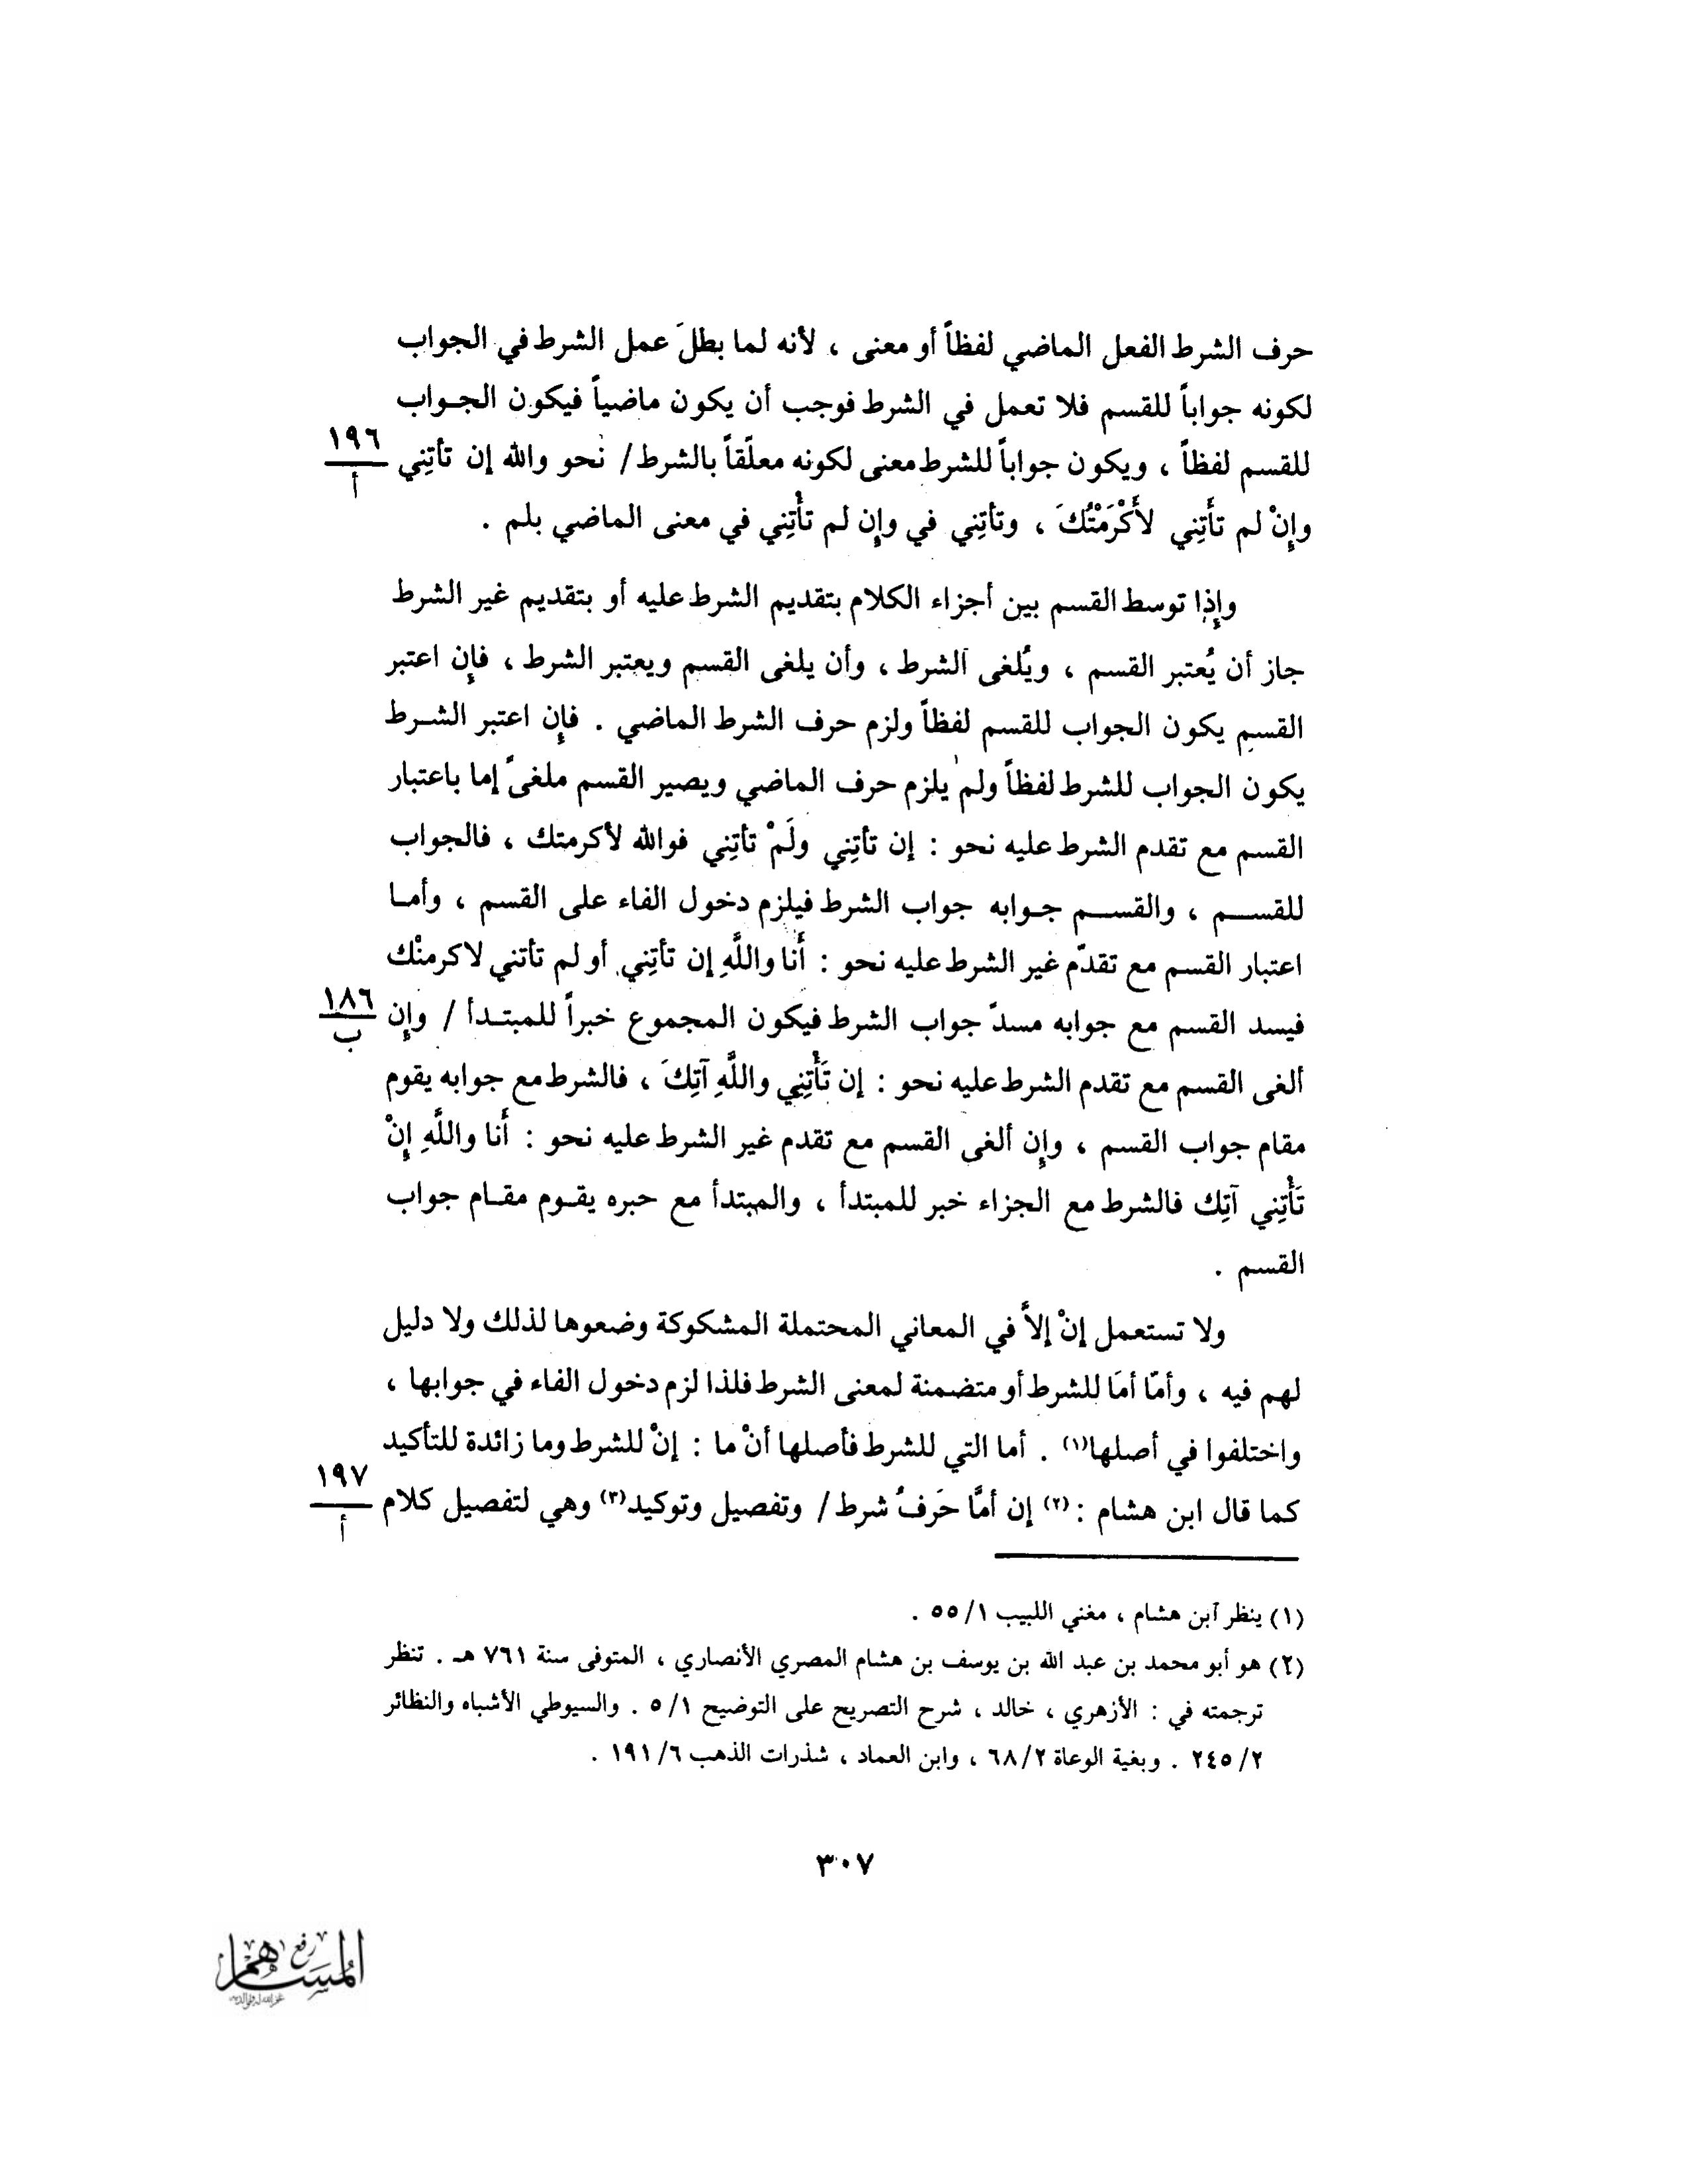 حرف الشرط الفعل الماضي لفظاً أو معنى ، لأنه لما بطلَ عمل الشرط في الجواب
لكونه جواباً للقسم فلا تعمل في الشرط فوجب أن يكون ماضياً فيكون الجواب
للقسم لفظاً ، ويكون جواباً للشرط معنى لكونه معلّقاً بالشرط / نحو والله إن تأتِني
١٩٦
أ
وإِنْ لم تأَتِني لأَكْرَمْتُكَ ، وتأتِني في وإِن لم تأْتِني في معنى الماضي بلم .
وإِذا توسط القسم بين أجزاء الكلام بتقديم الشرط عليه أو بتقديم غير الشرط
جاز أن يُعتبر القسم ، ويُلغى الشرط ، وأن يلغى القسم ويعتبر الشرط ، فإِن اعتبر
القسم يكون الجواب للقسم لفظاً ولزم حرف الشرط الماضي . فإِن اعتبر الشرط
يكون الجواب للشرط لفظاً ولم يلزم حرف الماضي ويصير القسم ملغىً إما باعتبار
القسم مع تقدم الشرط عليه نحو : إن تأتِني ولَمْ تأتِني فوالله لأكرمتك ، فالجواب
للقسم ، والقسم جوابه جواب الشرط فيلزم دخول الفاء على القسم ، وأما
اعتبار القسم مع تقدّم غير الشرط عليه نحو : أَنا واللَّهِ إن تأتِني أو لم تأتني لاكرمنْك
فيسد القسم مع جوابه مسدّ جواب الشرط فيكون المجموع خبراً للمبتدأ / وإِن
١٨٦
ب
ألغى القسم مع تقدم الشرط عليه نحو : إن تَأْتِني واللَّهِ آتِكَ ، فالشرط مع جوابه يقوم
مقام جواب القسم ، وإِن ألغى القسم مع تقدم غير الشرط عليه نحو : أَنا واللَّهِ إِنْ
تَأْتِني آتِك فالشرط مع الجزاء خبر للمبتدأ ، والمبتدأ مع حبره يقوم مقام جواب
القسم .
ولا تستعمل إنْ إلاَّ في المعاني المحتملة المشكوكة وضعوها لذلك ولا دليل
لهم فيه ، وأمّا أمَا للشرط أو متضمنة لمعنى الشرط فلذا لزم دخول الفاء في جوابها ،
واختلفوا في أصلها(١) . أما التي للشرط فأصلها أنْ ما : إنْ للشرط وما زائدة للتأكيد
كما قال ابن هشام :(٢) إن أمَّا حَرفُ شرط / وتفصيل وتوكيد(٣) وهي لتفصيل كلام
١٩٧
أ
(١) ينظر آبن هشام ، مغني اللبيب ٥٥/١ .
(٢) هو أبو محمد بن عبد الله بن يوسف بن هشام المصري الأنصاري ، المتوفى سنة ٧٦١ هـ . تنظر
ترجمته في : الأزهري ، خالد ، شرح التصريح على التوضيح ٥/١ . والسيوطي الأشباه والنظائر
٢٤٥/٢ . وبغية الوعاة ٦٨/٢ ، وابن العماد ، شذرات الذهب ١٩١/٦ .
٣٠٧
رفع
المساهم